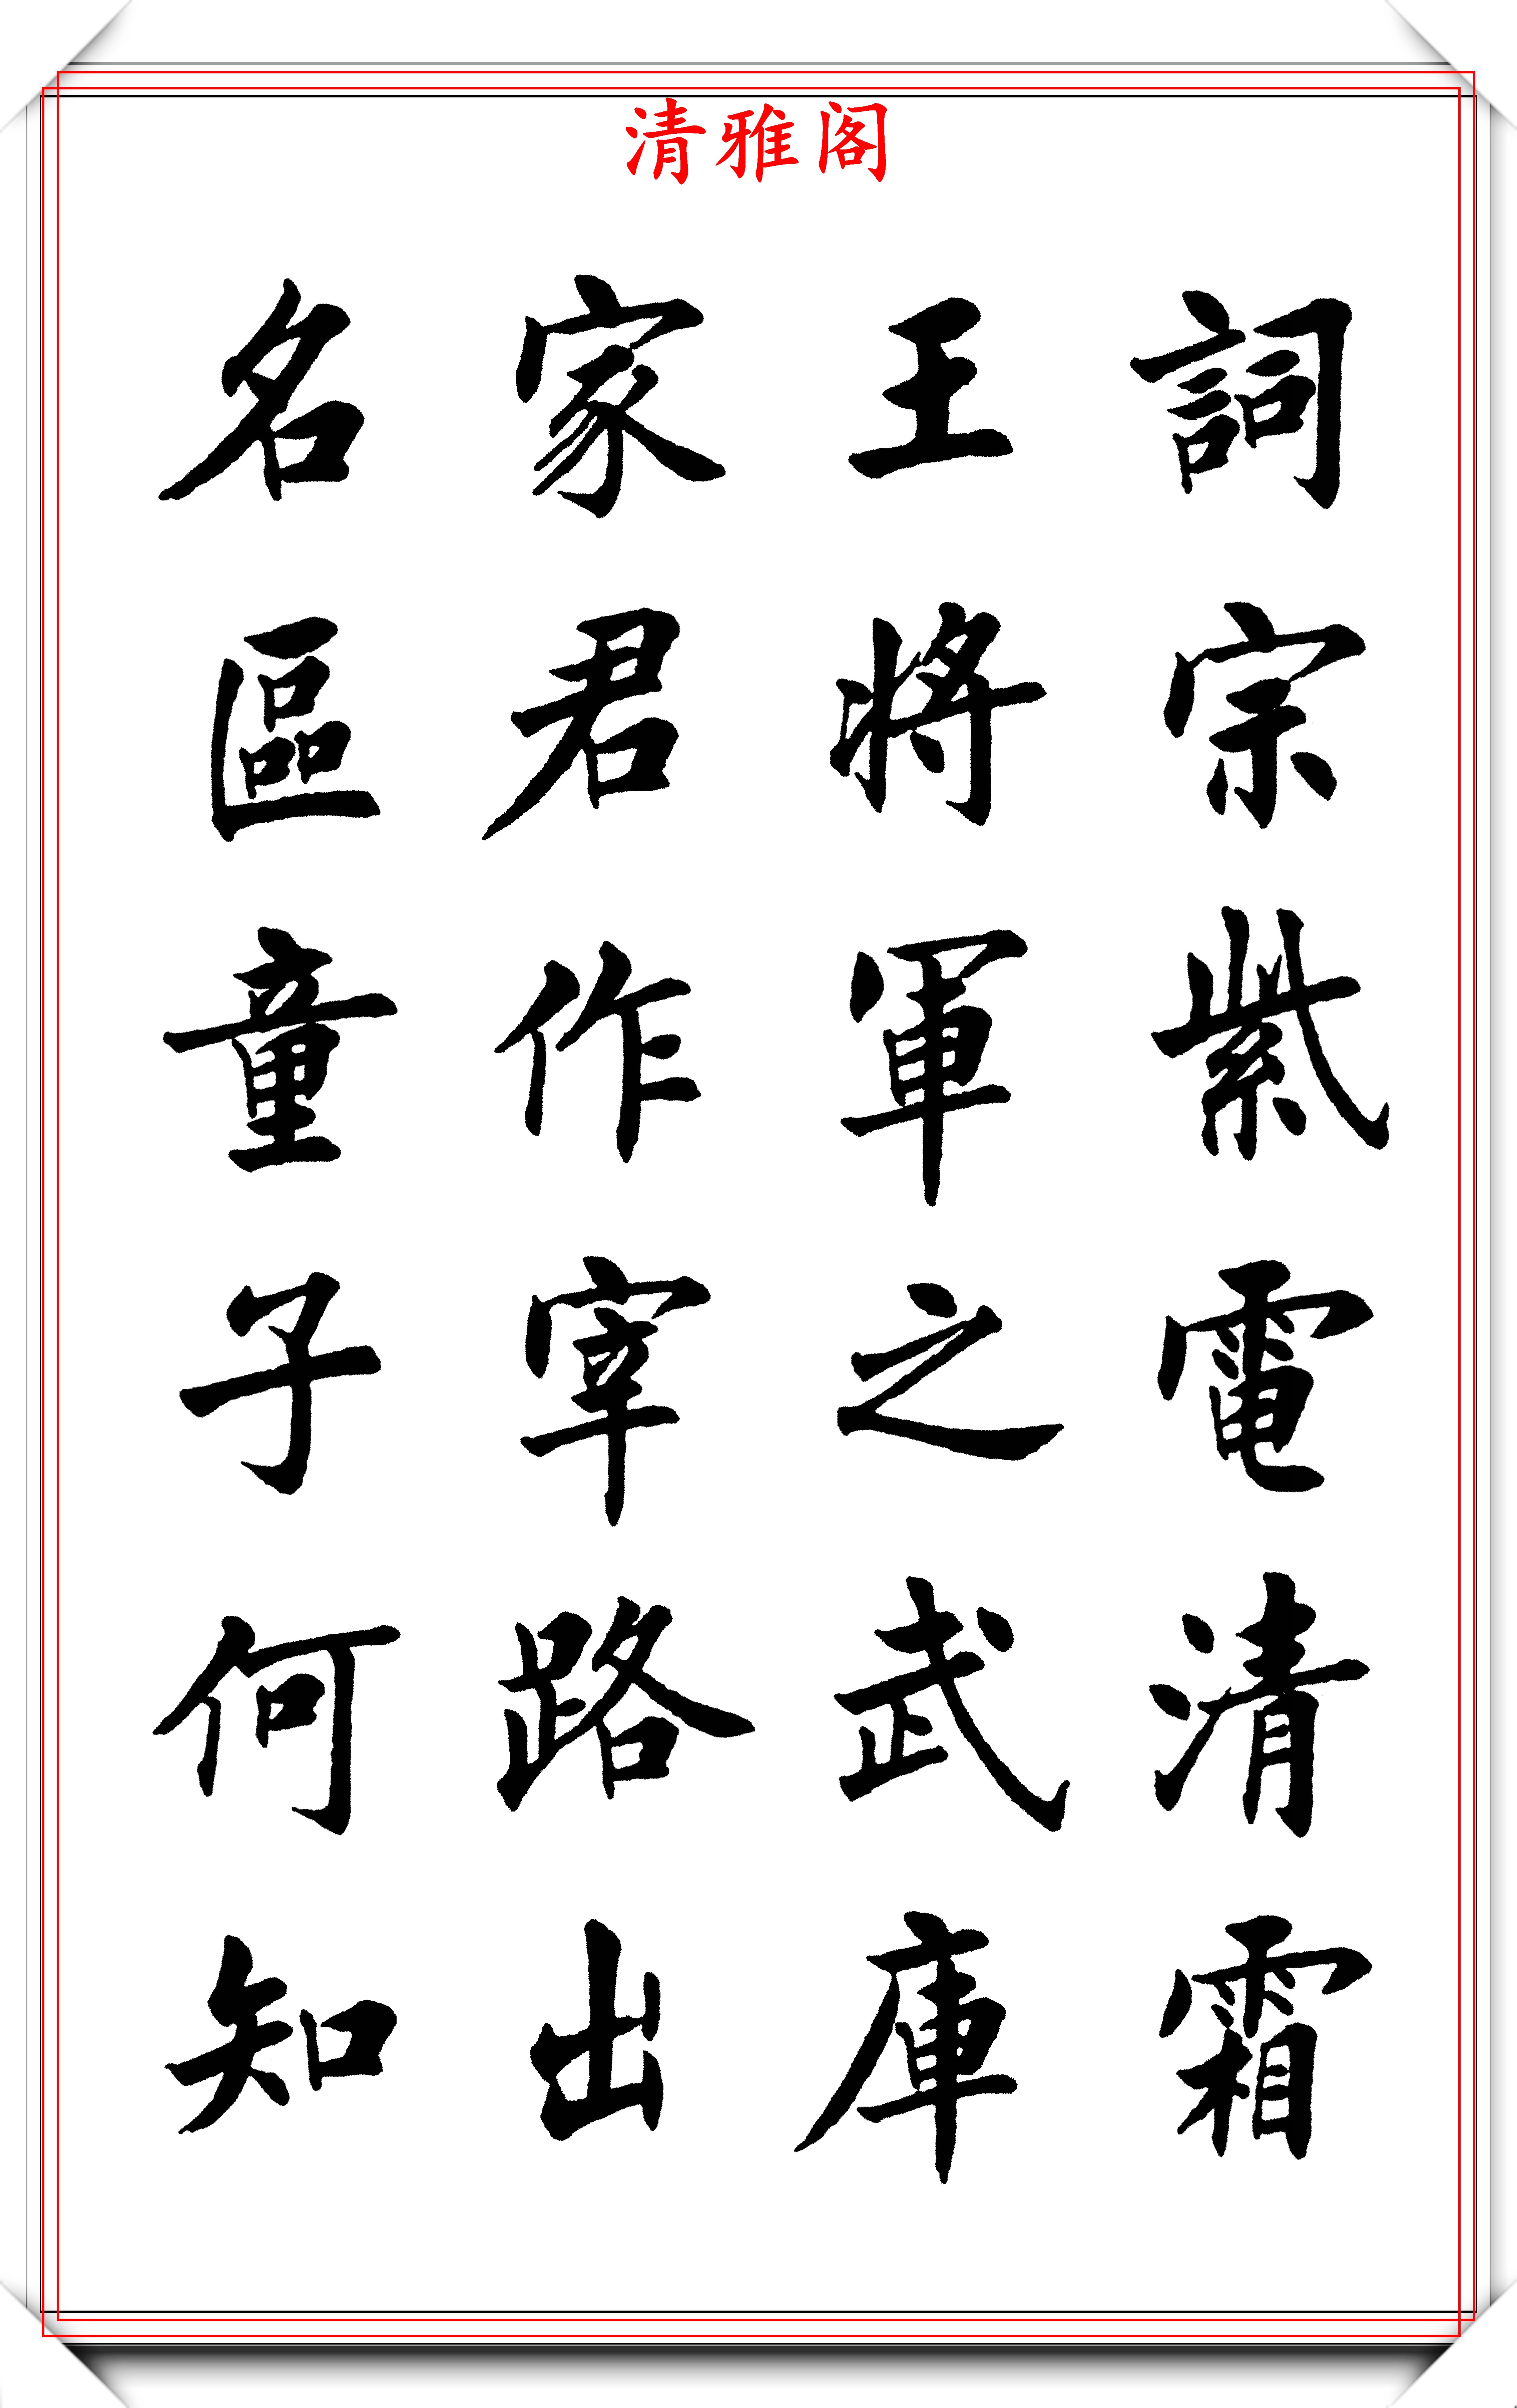 清雅阁
詞宗紫電清霜
王將軍之武庫
家君作宰路出
名區童子何知